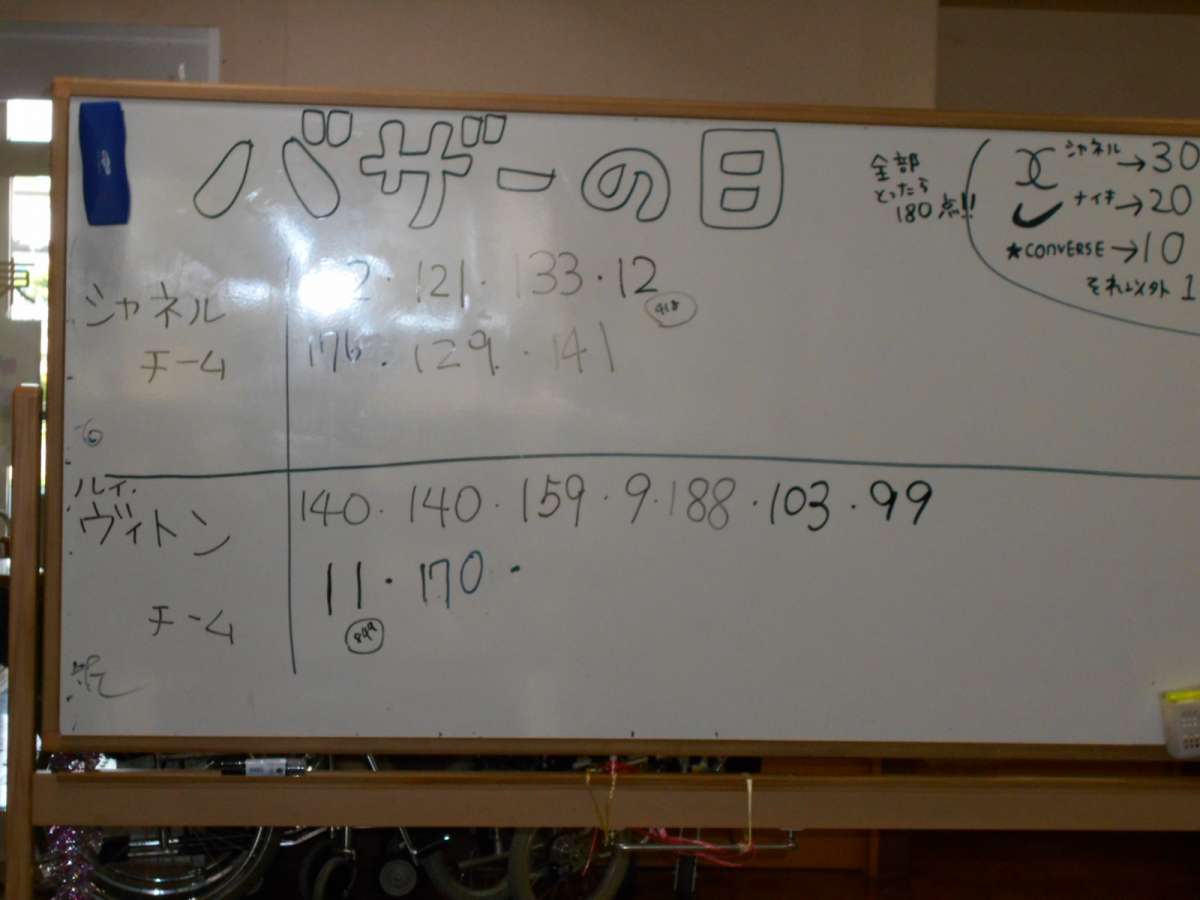 バザーの日
全部
とったら
180点!!
シャネル→30
ナイキ→20
★CONVERSE→10
それ以外 1
シャネル
チーム
2・121・133・12
176・129・141
ルイ・
ヴィトン
チーム
140・140・159・9・188・103・99
11・170・